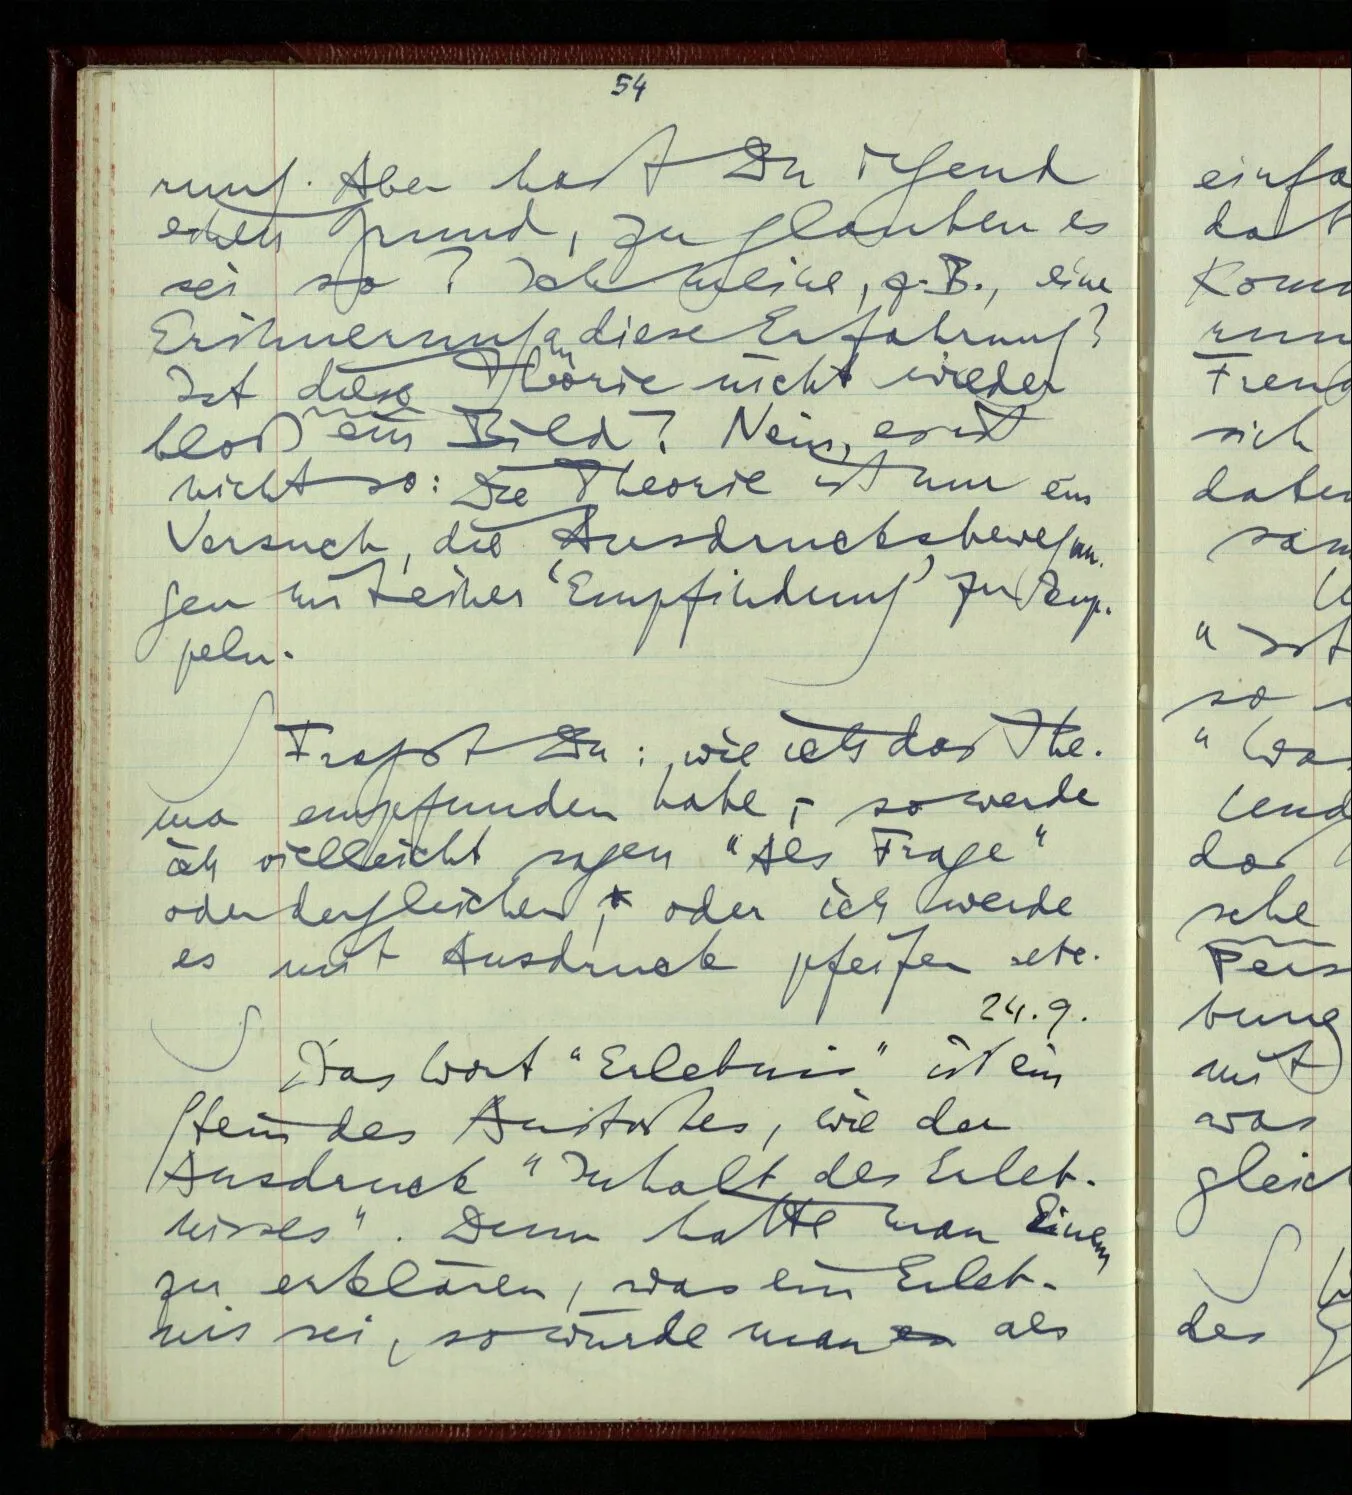 54
rung. Aber hast Du irgend
einen Grund, zu glauben es
sei so? Ich meine, z.B., eine
Erinnerung an diese Erfahrung?
Ist diese Theorie nicht wieder
bloß ein Bild? Nein, es ist
nicht so: Die Theorie ist nur ein
Versuch, die Ausdrucksbewegun-
gen mit einer ‘Empfindung’ zu kup-
peln.
Fragst Du: wie ich das The-
ma empfunden habe, – so werde
ich vielleicht sagen “Als Frage”
oder dergleichen, oder ich werde
es mit Ausdruck pfeifen etc.
24.9.
Das Wort “Erlebnis” ist ein
des wie der
Ausdruck “Inhalt des Erleb-
nisses”. Denn hätte man Einem
zu erklären, was ein Erleb-
nis sei, so würde man als
einfa
dab
Komm
rung
Freu
sich
daben
sam
U
“Ist
so
“Was
Und
das
sehe
Pers
bung
mit
was
gleich
des